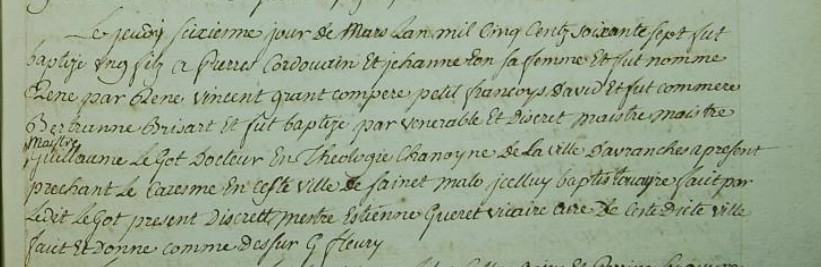 Le jeudy sixienme jour de Mars Lan mil Cinq Centz soixante sept fut
baptize ung filz a Pierres Cordouain Et jehanne ton sa femme Et fut nomme
Rene par Rene vincent grant compere petit francoys David Et fut commere
Bertranne Brisart Et fut baptize par venerable Et Discret maistre maistre
Maistre
Guillaume Le Got Docteur En Theologie Chanoyne De La ville Davranches a present
prechant Le Caresme En ceste ville De sainct malo jcelluy baptistouayre fait par
Ledit Le Got present Discrett mestre Estienne Gueret vicaire cure De Ceste Dicte ville
faict Et Donne comme Dessur G fleury